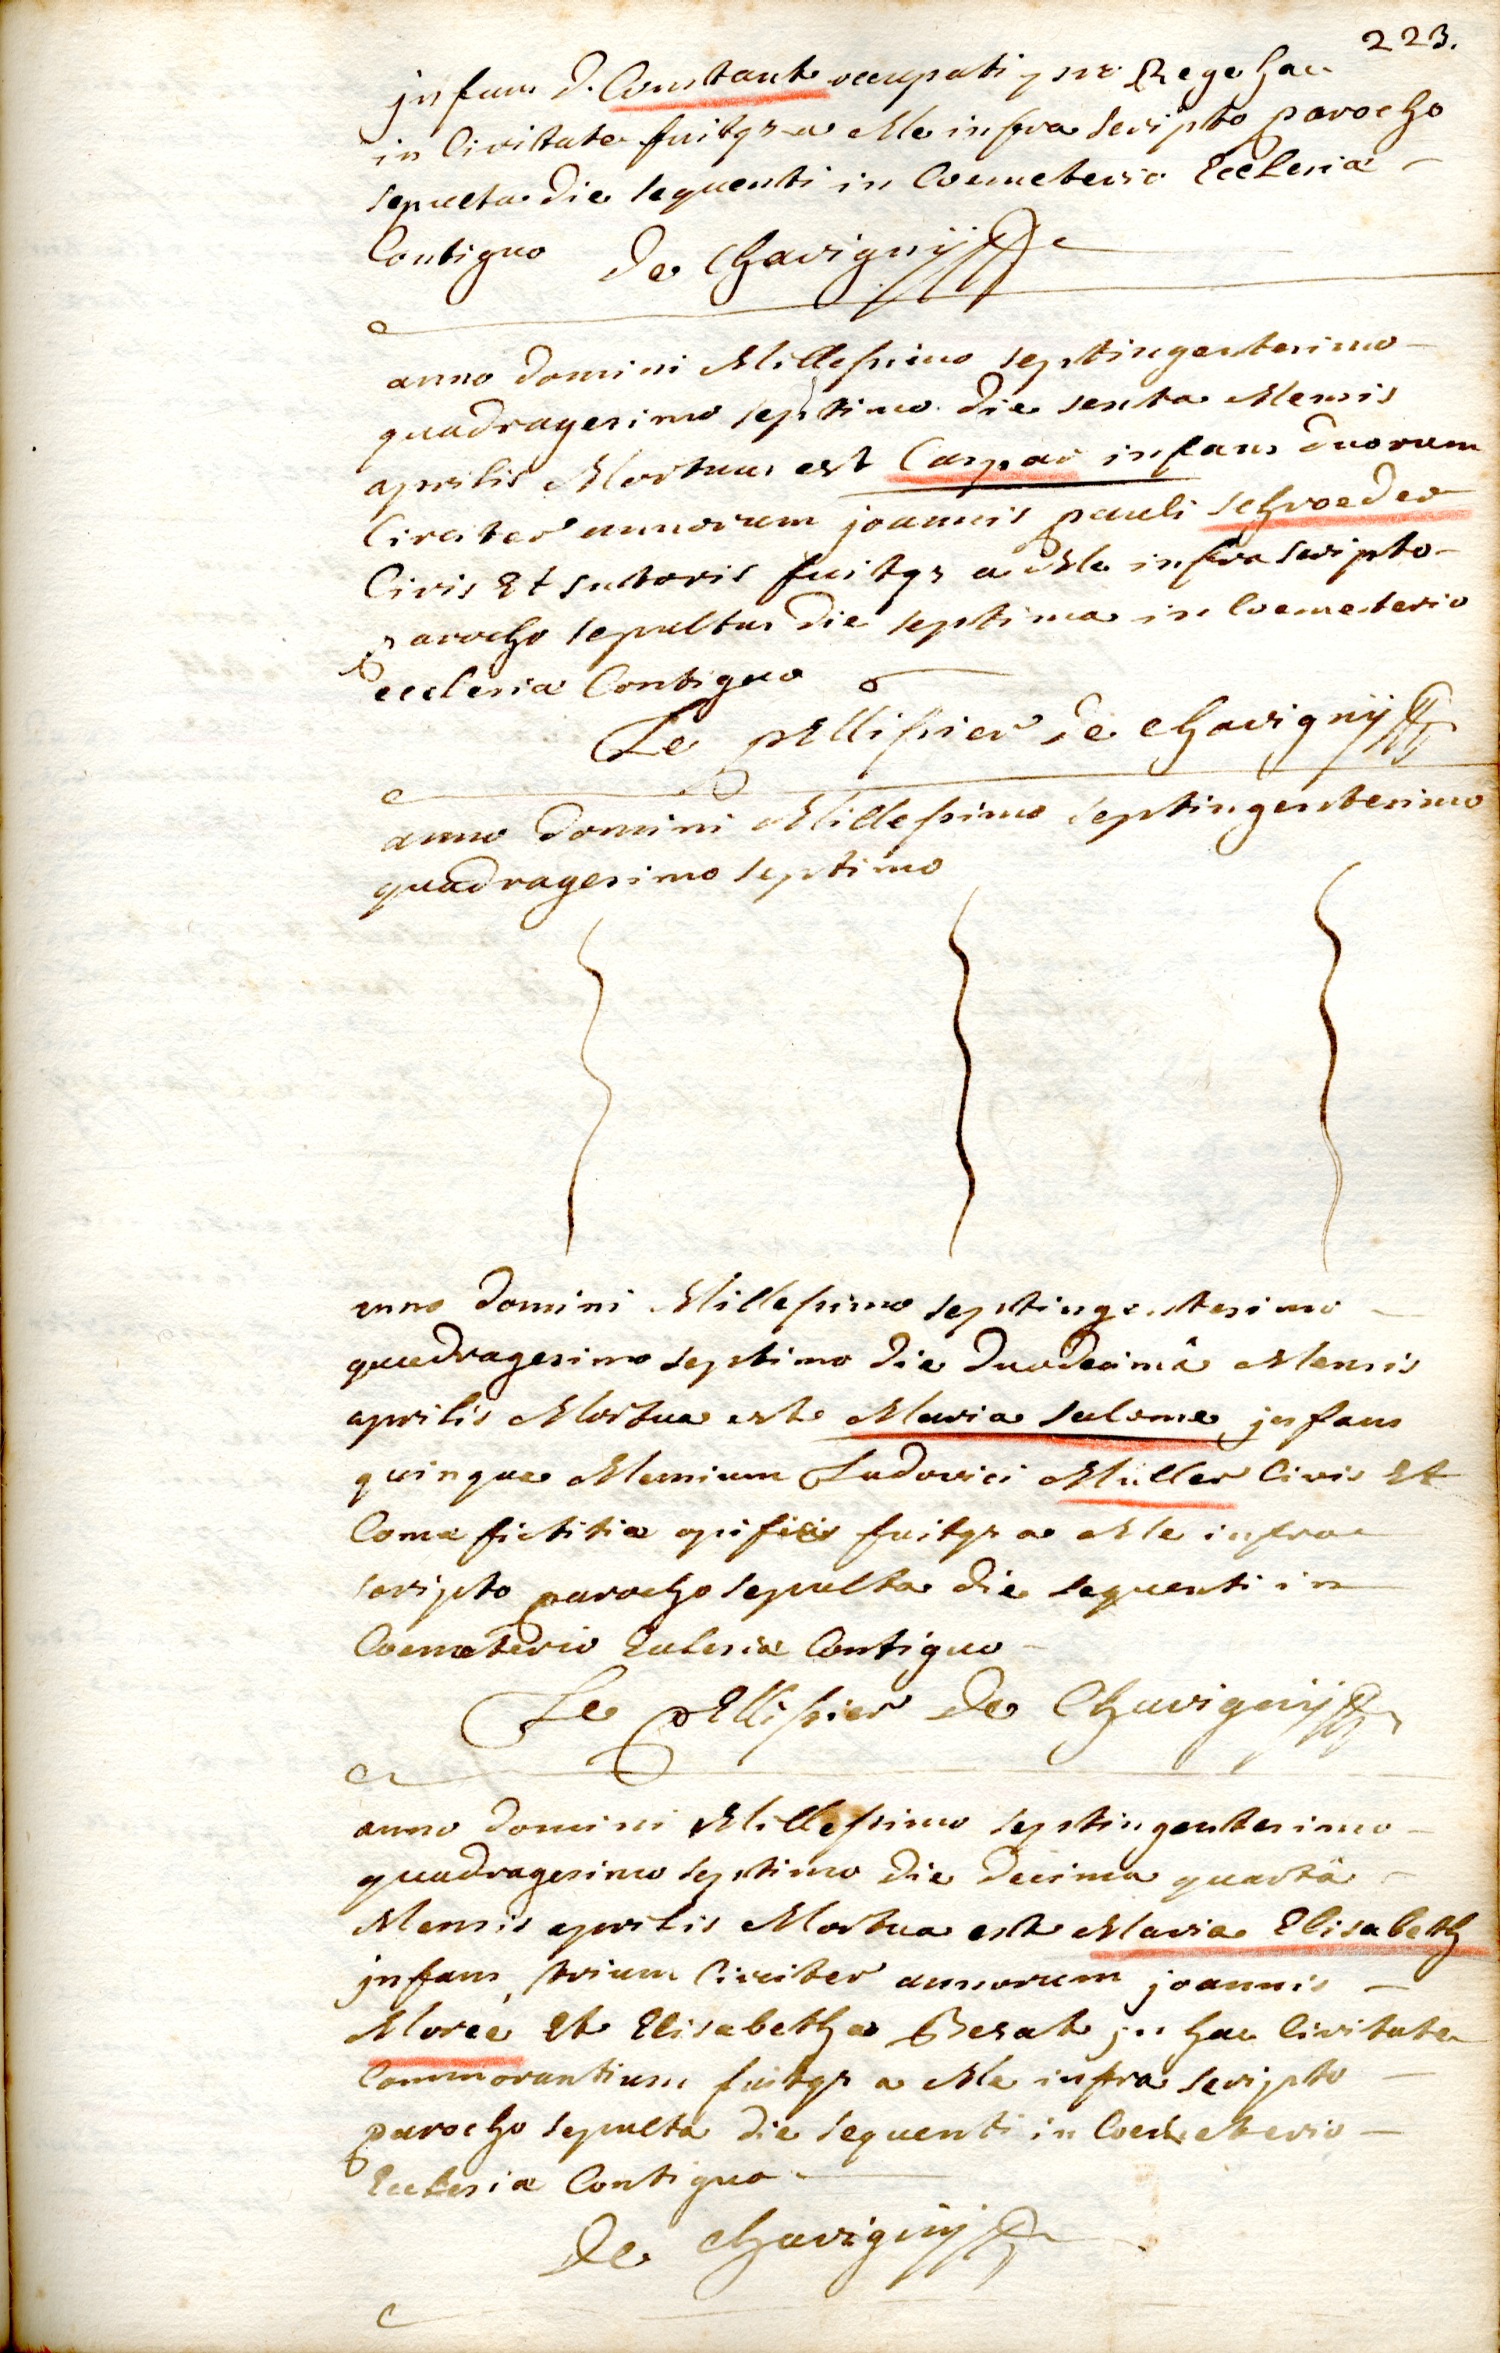 223.
infans d. Constant occupati pro Rege hac
in Civitate fuitqz a Me infra scripto parocho
sepulta die sequenti in Coemeterio Ecclesiæ
Contiguo de Chavignij
anno domini Millessimo septingentesimo
quadragesimo septimo die sexta Mensis
aprilis Mortuus est Caspar infans duorum
Circiter annorum joannis pauli schroeder
Civis Et sutoris fuitqz a Me infra scripto
parocho sepultus die septima in Coemeterio
ecclesiæ Contiguo
Le pEllissier de Chavignij
anno domini Millessimo septingentesimo
quadragesimo septimo
anno domini Millessimo septingentesimo
quadragesimo septimo die duodecimâ Mensis
aprilis Mortua est Maria salome jnfans
quinque Mensium Ludovici Müller Civis Et
Comæ fictitiæ opificis fuitqz a Me infra
scripto parocho sepulta die sequenti in
Coemeterio Ecclesiæ Contiguo
Le pEllissier de Chavignij
anno domini Millessimo septingentesimo
quadragesimo septimo die decima quartâ
Mensis aprilis Mortua est Maria Elisabeth
jnfans trium Circiter annorum joannis
Moreé Et Elisabethæ Besat jn hac Civitate
Commorantium fuitqz a Me infra scripto
parocho sepulta die sequenti in Coemeterio
Ecclesiæ Contiguo
de Chavignij